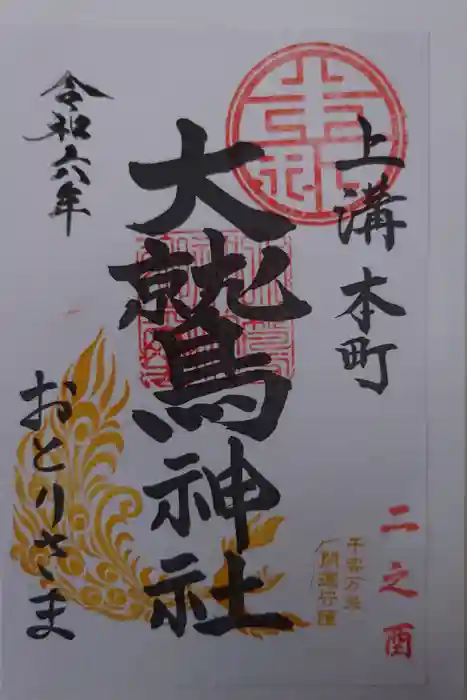 上溝本町
二之酉
大鷲神社
令和六年
おとりさま
開運守護